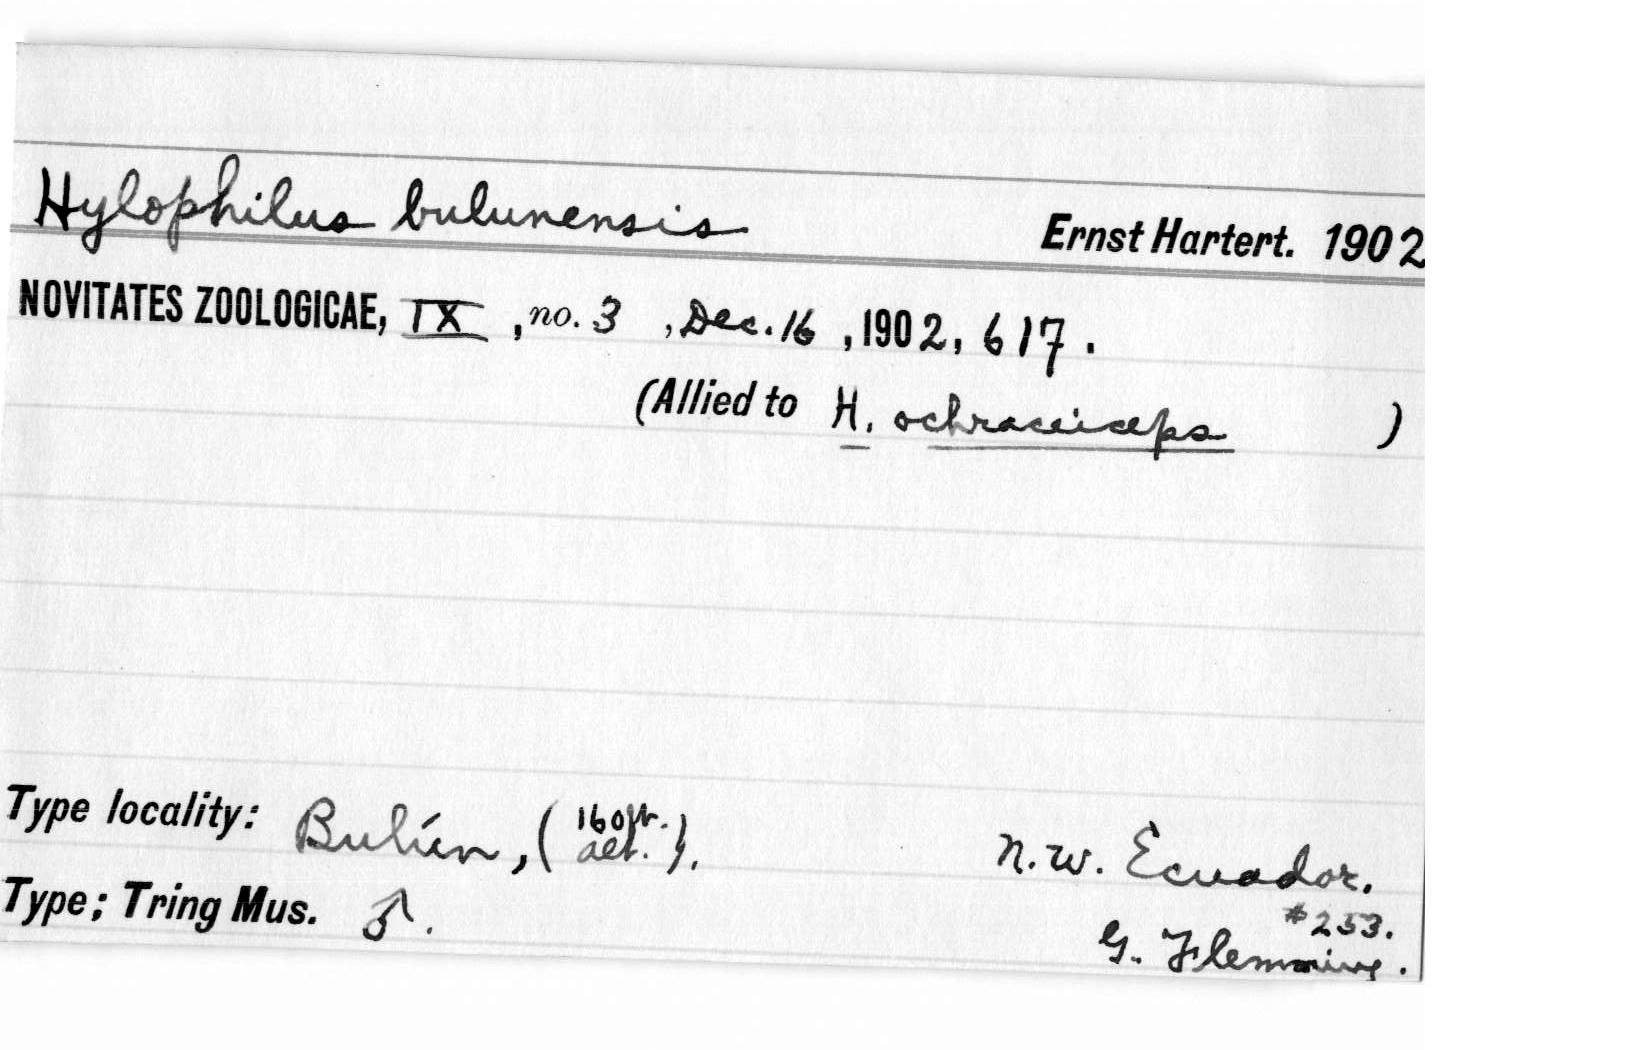 Hylophilus bulunensis Ernst Hartert. 1902
NOVITATES ZOOLOGICAE, IX, no. 3, Dec. 16, 1902, 617.
(Allied to H. ochraceiceps )
Type locality: Bulún, (160ft. alt.). N.W. Ecuador.
Type; Tring Mus. ♂. #253.
G. Flemming.